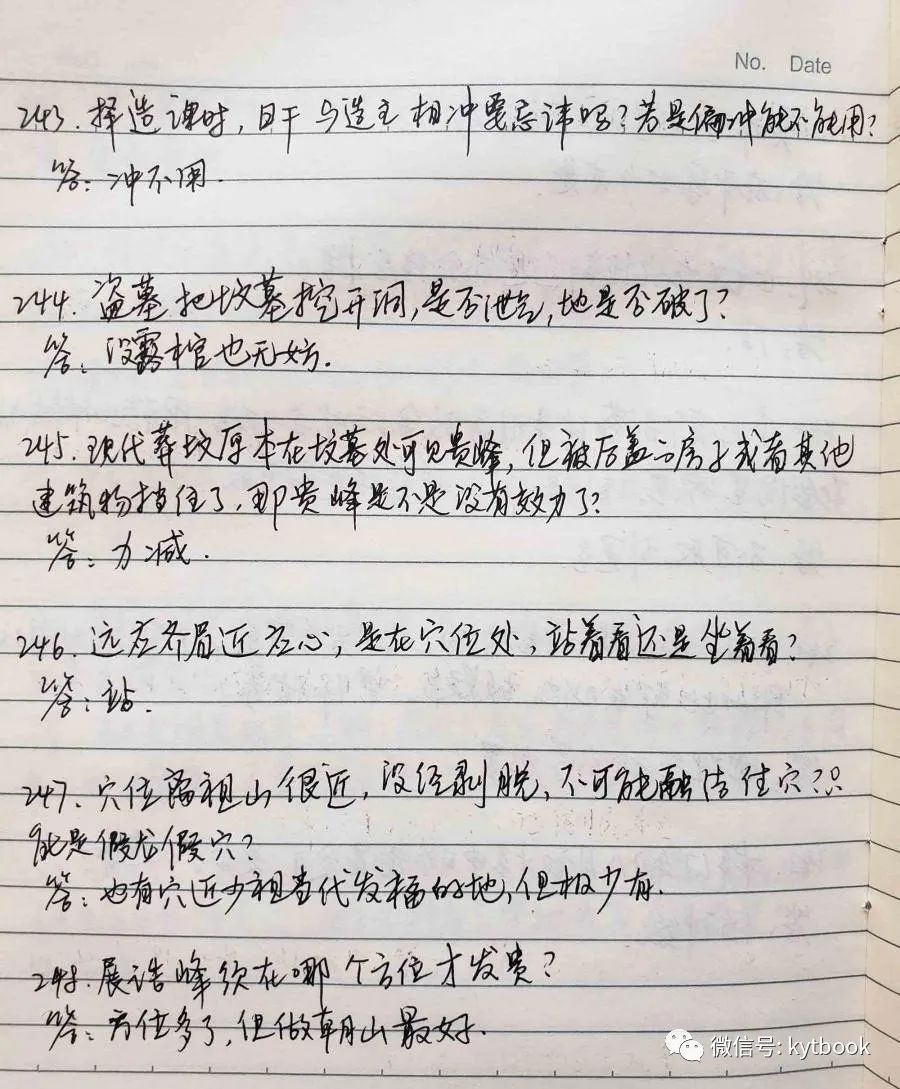 No. Date
243. 择造课时,日干与造主相冲要忌讳吗?若是偏冲能不能用?
答:冲不用.
244. 盗墓把坟墓挖开洞,是否泄气,地是否破了?
答:没露棺也无妨.
245. 现代葬坟原本在坟墓处可见贵峰,但被后盖的房子或着其他
建筑物挡住了,那贵峰是不是没有效力了?
答:力减.
246. 远在齐眉近在心,是在穴位处,站着看还是坐着看?
答:站.
247. 穴位离祖山很近,没经剥脱,不可能融结佳穴?只
能是假龙假穴?
答:也有穴近少祖当代发福的地,但极少有.
248. 展诰峰须在哪个方位才发贵?
答:方位多了,但做朝山最好.
微信号: kytbook